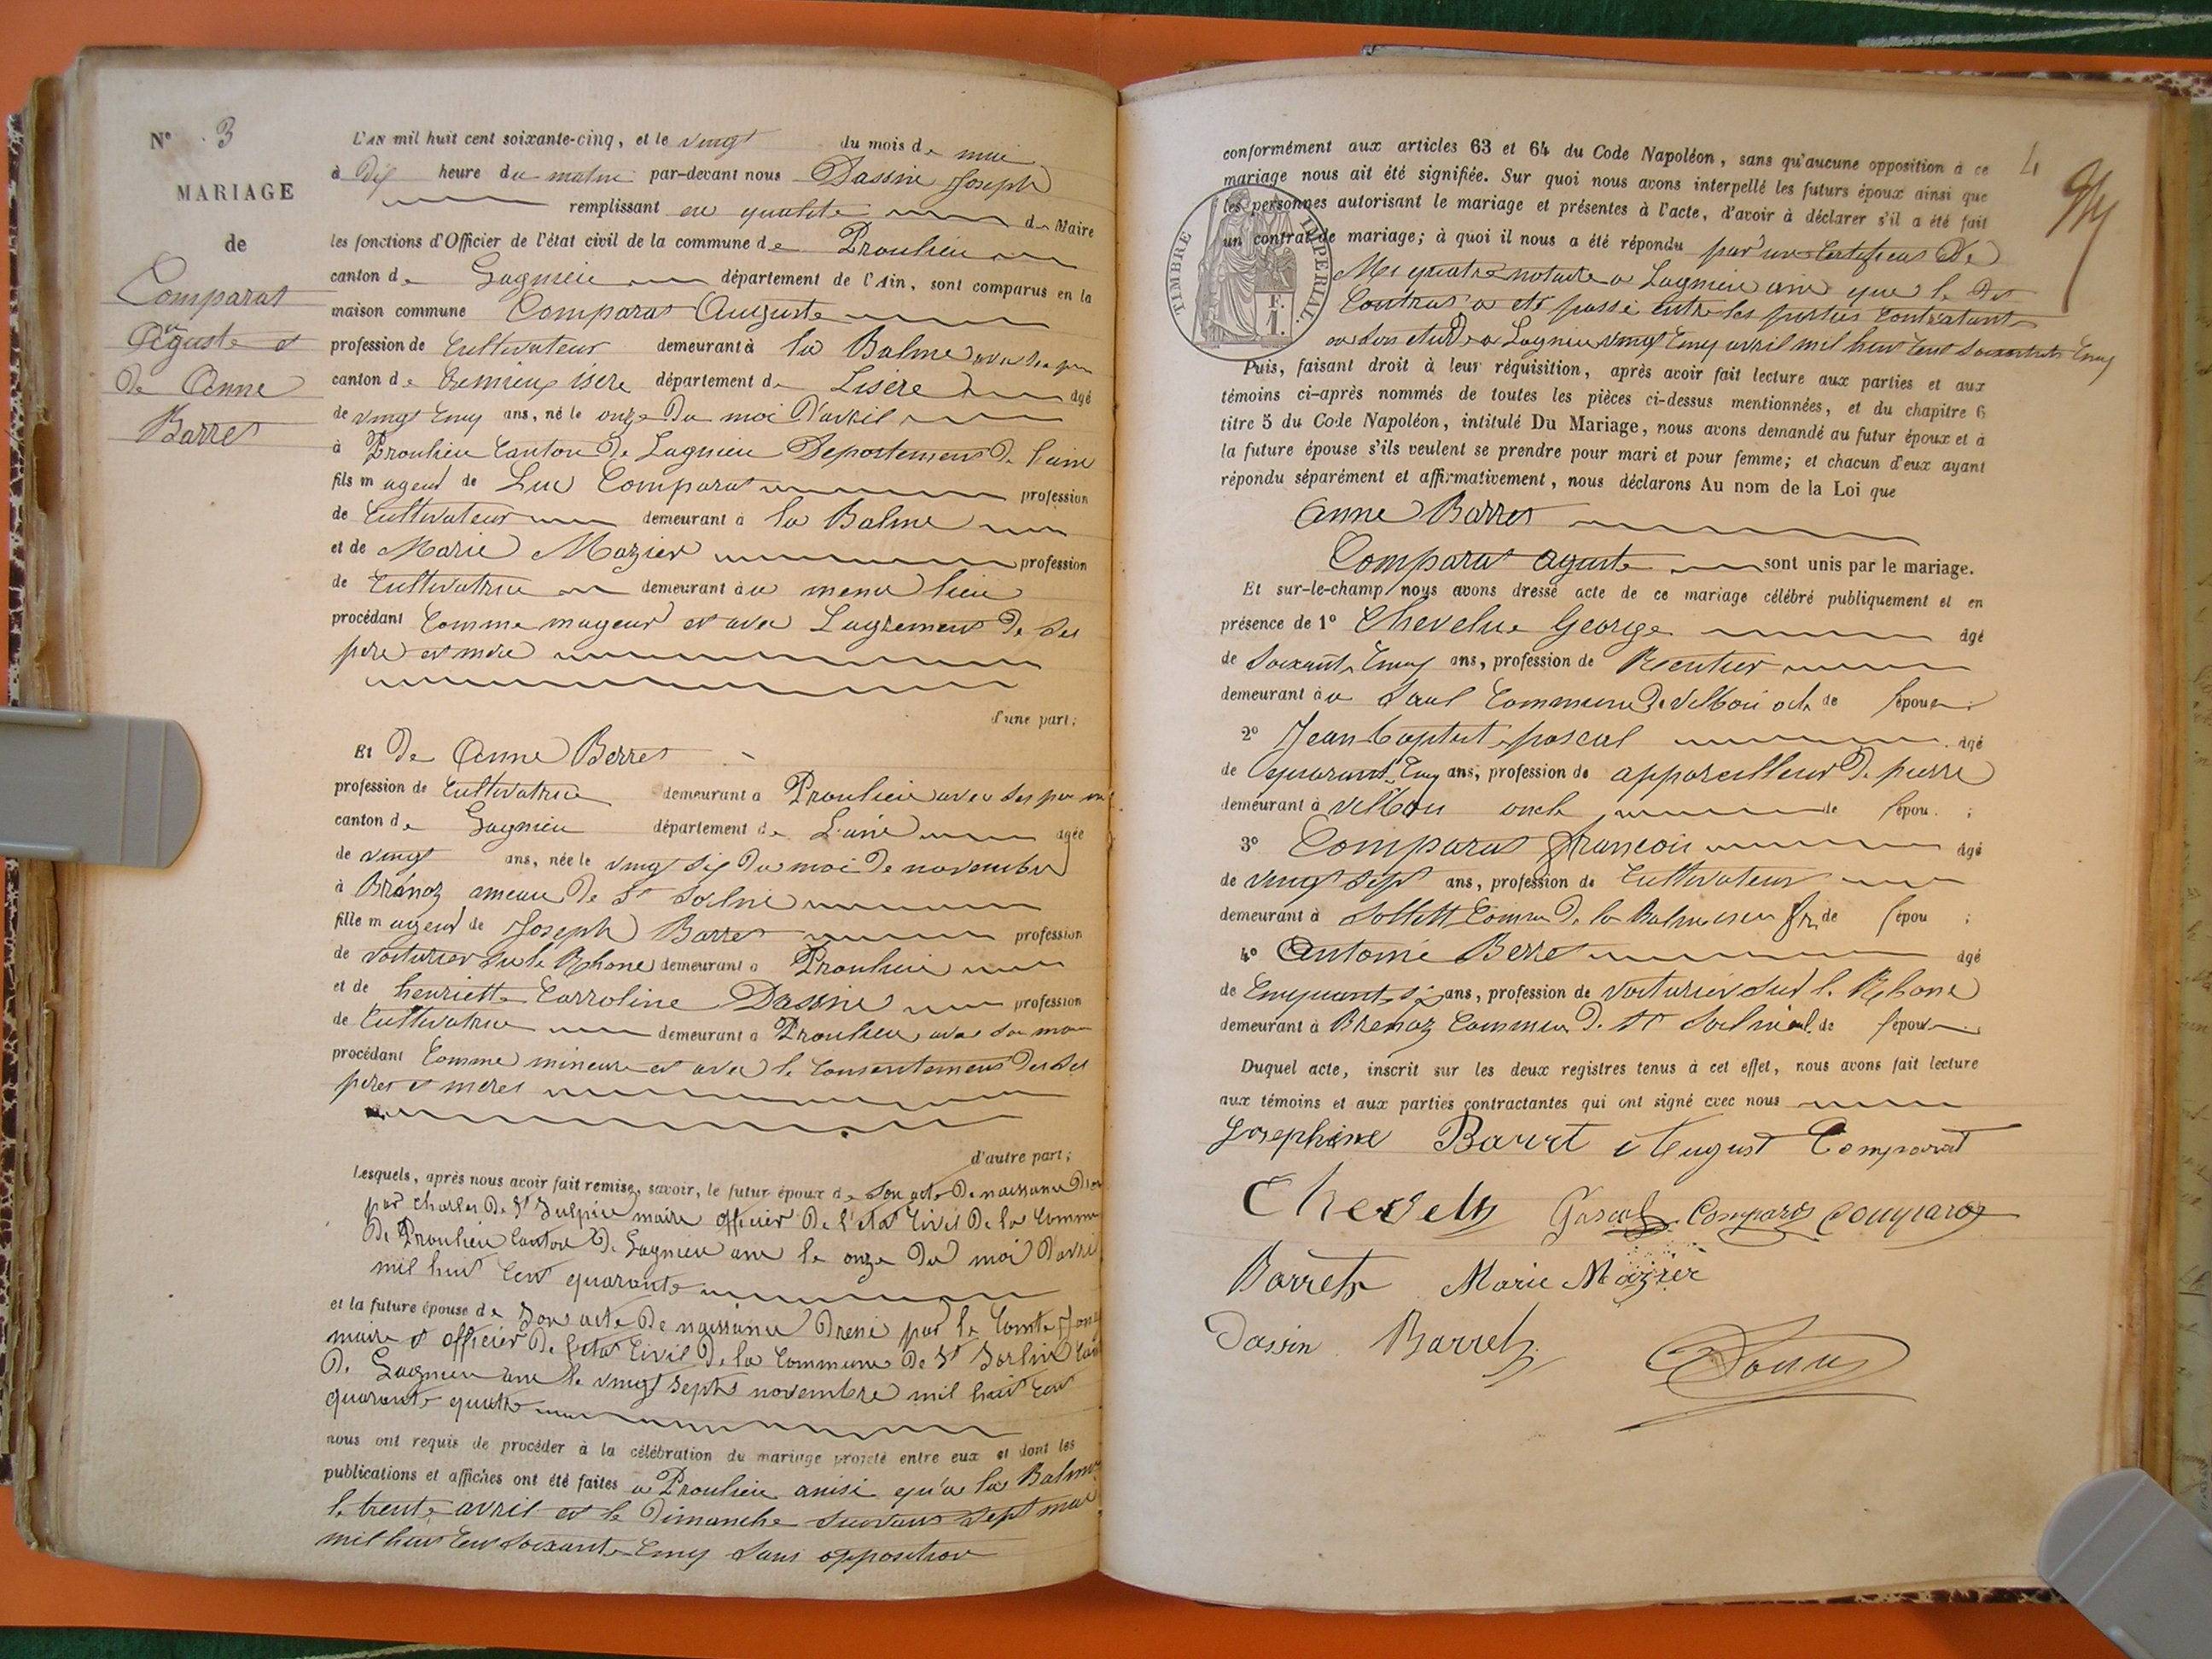 N° 3
MARIAGE
de
Comparat
Aguste et
de Anne
Barret
L'AN mil huit cent soixante-cinq, et le vingt du mois de mai
à dix heure du matin par-devant nous Dassin Joseph
remplissant en qualité de Maire
les fonctions d'Officier de l'état civil de la commune de Proulieu
canton de Lagnieu département de l'Ain, sont comparus en la
maison commune Comparat Auguste
profession de Cultivateur demeurant à la Balme
canton de Cremieux isere département de Lisère âgé
de vingt cinq ans, né le onze du moi d'avril
à Proulieu Canton de Lagnieu Departement de l'ain
fils mageur de Luc Comparat profession
de Cultivateur demeurant à la Balme
et de Marie Mazier profession
de Cultivatrice demeurant à u meme lieu
procédant Comme mageur et avec Lagrement de ses
pere et mere
d'une part;
Et De Anne Berret
profession de Cultivatrice demeurant à Proulieu avec ses
canton de Lagnieu département de L'ain agée
de vingt ans, née le vingt six du moi de novembre
à Brénaz ameau de St Sorlin
fille mageur de Joseph Barret profession
de voiturier sur le Rhone demeurant à Proulieu
et de henriette Carroline Dassin profession
de Cultivatrice demeurant à Proulieu avec son
procédant Comme mineure et avec le Consentement des ses
peres et meres
d'autre part;
Lesquels, après nous avoir fait remise, savoir, le futur époux de son acte de naissance
par Charles De St Sulpice maire officier de l'état Civil de la Commune
De Proulieu Canton de Lagnieu ain le onze du moi d'avril
mil huit Cent quarante
et la future épouse de son acte de naissance Dressé par le Comte
maire et officier de l'état Civil de la Commune de St Sorlin
De Lagnieu ain le vingt sept novembre mil huit Cent
quarante quatre
nous ont requis de procéder à la célébration du mariage projeté entre eux et dont les
publications et affiches ont été faites a Proulieu anisi qu'a la Balme
le trente avril et le Dimanche suivant sept mai
mil huit Cent soixante Cinq sans opposition
4
conformément aux articles 63 et 64 du Code Napoléon, sans qu'aucune opposition à ce
mariage nous ait été signifiée. Sur quoi nous avons interpellé les futurs époux ainsi que
les personnes autorisant le mariage et présentes à l'acte, d'avoir à déclarer s'il a été fait
un contrat de mariage; à quoi il nous a été répondu par un Certificat De
Me quatre notaire a Lagnieu ain que le dit
Contrat a eté passé entre les parties Contratante
en son etude a Lagnieu vingt Cinq avril mil huit Cent soixante Cinq
TIMBRE IMPERIAL
Puis, faisant droit à leur réquisition, après avoir fait lecture aux parties et aux
témoins ci-après nommés de toutes les pièces ci-dessus mentionnées, et du chapitre 6
titre 5 du Code Napoléon, intitulé Du Mariage, nous avons demandé au futur époux et à
la future épouse s'ils veulent se prendre pour mari et pour femme; et chacun d'eux ayant
répondu séparément et affirmativement, nous déclarons Au nom de la Loi que
Anne Barret
Comparat aguste sont unis par le mariage.
Et sur-le-champ nous avons dressé acte de ce mariage célébré publiquement et en
présence de 1° Chevelu George âgé
de soixante Cinq ans, profession de Rentier
demeurant à u Saul Commune de de l'épouse.
2° Jean baptiste pascal âgé
de quarante Cinq ans, profession de apporeilleur de pierre
demeurant à oncle de l'épou ;
3° Comparat françois âgé
de vingt sept ans, profession de Cultivateur
demeurant à de la Balme de l'épou ;
4° Antoine Berret âgé
de Cinquante six ans, profession de voiturier sur le Rhone
demeurant à Brenaz Commune de St Sorlin de l'épou
Duquel acte, inscrit sur les deux registres tenus à cet effet, nous avons fait lecture
aux témoins et aux parties contractantes qui ont signé avec nous
Josephine Barret August Comparat
Chevelu Pascal Comparat Comparat
Barret Marie Mazier
Dassin Barret
Dassin